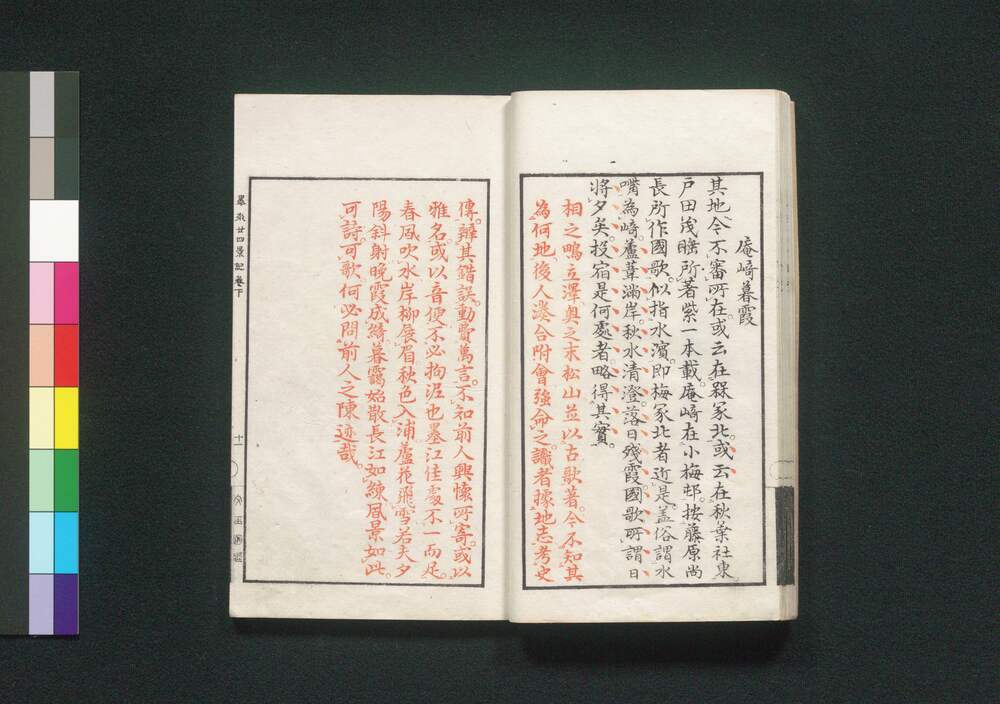 庵崎暮霞
其地今不審所在或云在槑冢北或云在秋葉社東
戸田茂睡所著紫一本載庵崎在小梅邨按藤原尚
長所作國歌似指水濱即梅冢北者近是蓋俗謂水
嘴為崎蘆葦滿岸秋水清澄落日殘霞國歌所謂日
將夕矣投宿是何處者略得其實
相之鴫立澤奥之末松山並以古歌著今不知其
為何地後人湊合附會強命之識者據地志考史
傳辨其錯誤動費萬言不知前人興懷所寄或以
雅名或以音便不必拘泥也墨江佳處不一而足
春風吹水岸柳展眉秋色入浦蘆花飛雪若夫夕
陽斜射晚霞成綺暮靄始散長江如練風景如此
可詩可歌何必問前人之陳迹哉
墨水廿四景記卷下
十一